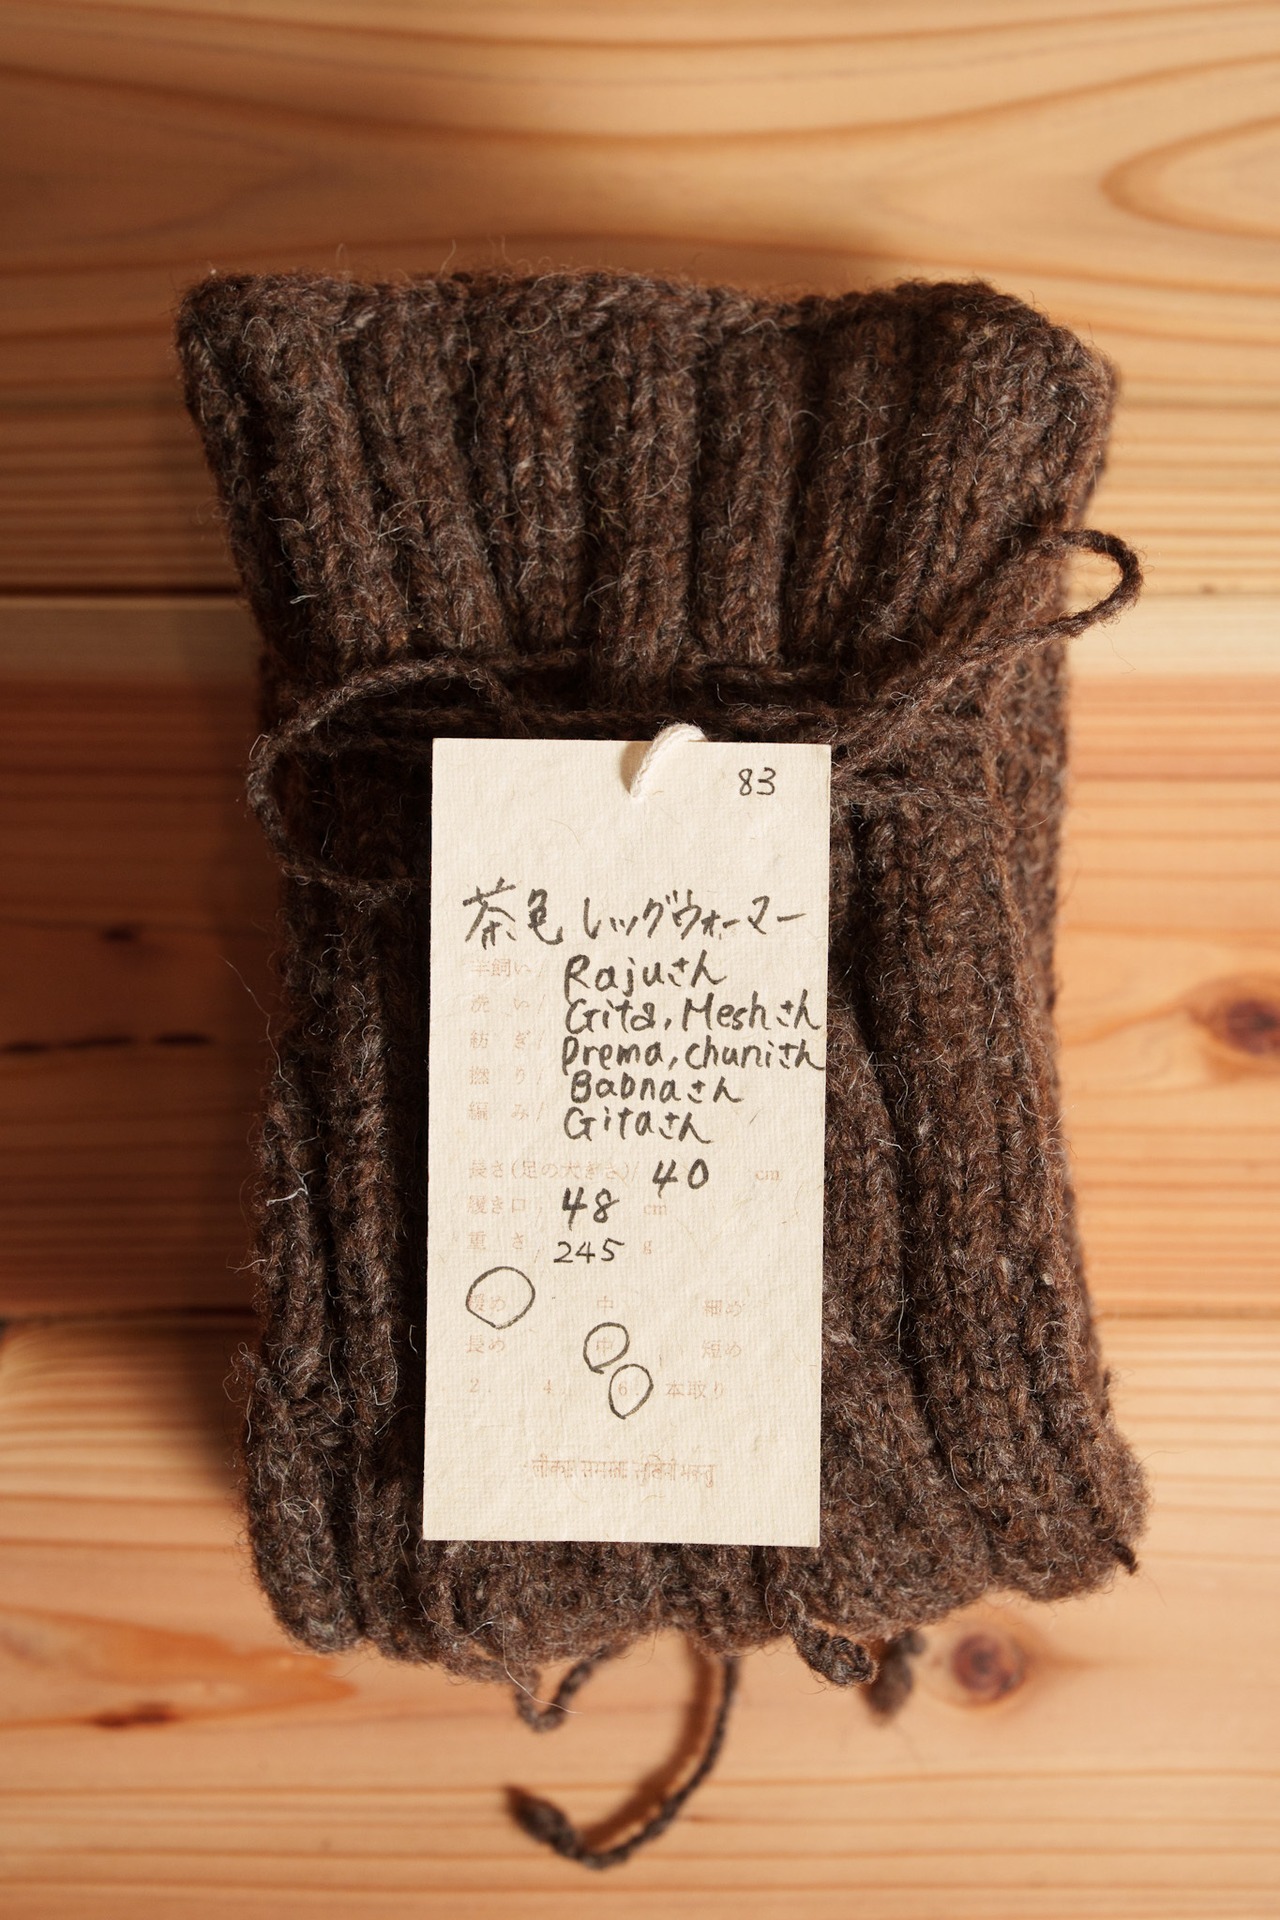 83
茶色 レッグウォーマー
羊飼い/ Rajuさん
洗い/ Gita, Meshさん
紡ぎ/ Prema, Chuniさん
撚り/ Babnaさん
編み/ Gitaさん
長さ(足の大きさ)/ 40 cm
履き口/ 48 cm
重さ/ 245 g
緩め 中 細め
長め 中 短め
2. 4. 6. 本取り